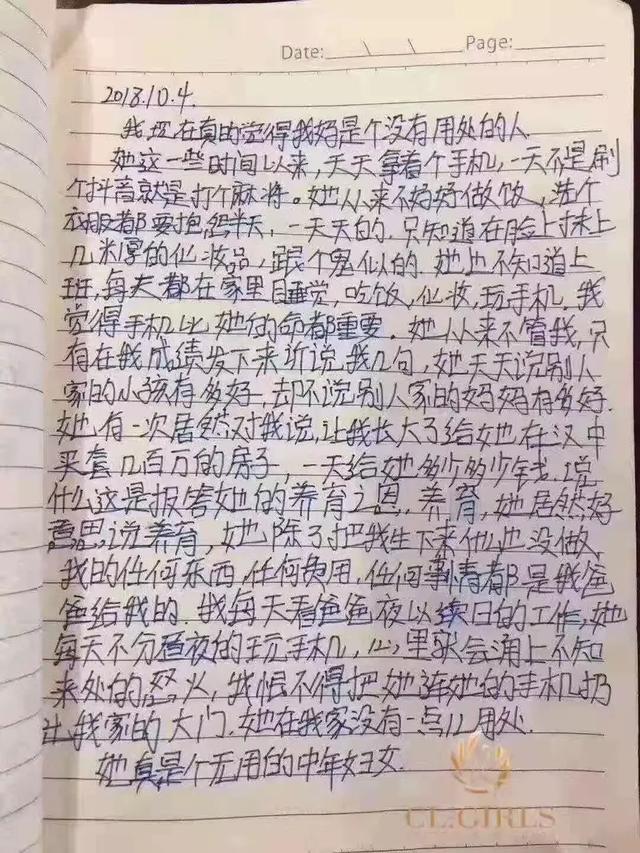 Date: \ \ Page:
2018.10.4.
我现在真的觉得我妈是个没有用处的人
她这一些时间以来,天天拿着个手机,一天不是刷
个抖音就是打个麻将。她从来不好好做饭,洗个
衣服都要抱怨半天,一天天的.只知道在脸上抹上
几米厚的化妆品,跟个鬼似的.她也不知道上
班,每天都在家里睡觉,吃饭,化妆,玩手机.我
觉得手机比她的命都重要.她从来不管我,只
有在我成绩发下来近说我几句,她天天说别人
家的小孩有多好,却不说别人家的妈妈有多好.
她,有一次居然对我说,让我长大了给她在汉中
买套几百万的房子,一天给她多少多少钱.说
什么这是报答她的养育之恩.养育,她居然好
意思说养育,她除了把我生下来他也没做,
我的任何东西,任何费用,任何事情都是我爸
爸给我的.我每天看爸爸夜以续日的工作,她
每天不分昼夜的玩手机,心里就会涌上不知
来处的怒火,我恨不得把她连她的手机扔
出我家的大门.她在我家没有一点儿用处.
她真是个无用的中年妇女.
CL:GIRLS